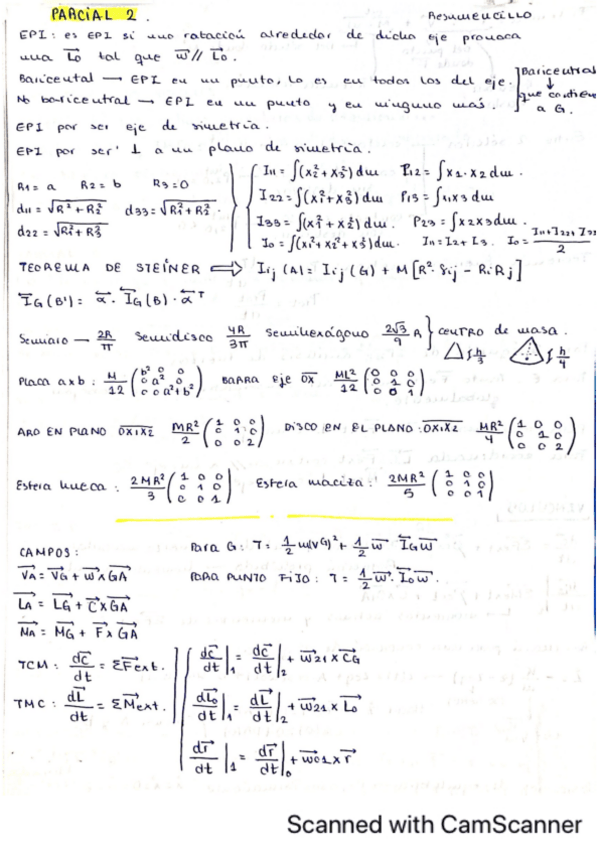 PARCIAL 2.
Resumencillo
EPI: es EPI si una rotación alrededor de dicho eje provoca
una L⃗o tal que w⃗ // L⃗o.
Baricental → EPI en un punto, lo es en todos los del eje.
No baricentral → EPI en un punto y en ninguno más.
Baricentral
↓
que contiene
a G.
EPI por ser eje de simetría.
EPI por ser ⊥ a un plano de simetría.
R1 = a R2 = b R3 = 0
d11 = √(R²+R2²) d33 = √(R1²+R2²)
d22 = √(R1²+R3²)
I11 = ∫(x2²+x3²) dm P12 = ∫x1·x2 dm.
I22 = ∫(x1²+x3²) dm P13 = ∫x1x3 dm
I33 = ∫(x1²+x2²) dm. P23 = ∫x2x3 dm.
Io = ∫(x1²+x2²+x3²) dm. I1 = I2 + I3. Io = (I11+I22+I33)/2
TEOREMA DE STEINER ⇒ Iij (A) = Iij (G) + M[R²·δij − RiRj]
I⃗G(B') = α⃗ · I⃗G(B) · α⃗ᵀ
Semiaro — 2R/π Semidisco 4R/3π Semihexágono 2√3/9 R } CENTRO de masa.
h/3 h/4
Placa axb: M/12 (b² 0 0 / 0 a² 0 / 0 0 a²+b²) BARRA eje OX ML²/12 (0 0 0 / 0 1 0 / 0 0 1)
ARO EN PLANO OX1X2 MR²/2 (1 0 0 / 0 1 0 / 0 0 2) DISCO EN EL PLANO: OX1X2 MR²/4 (1 0 0 / 0 1 0 / 0 0 2)
Esfera hueca: 2MR²/3 (1 0 0 / 0 1 0 / 0 0 1) Esfera maciza: 2MR²/5 (1 0 0 / 0 1 0 / 0 0 1)
CAMPOS: Para G: T = 1/2 m(vG)² + 1/2 w⃗ · I⃗G w⃗
V⃗A = V⃗G + w⃗ x GA PARA PUNTO FIJO: T = 1/2 w⃗ · I⃗o w⃗.
L⃗A = L⃗G + C⃗ x GA
M⃗A = M⃗G + F⃗ x GA
TCM: dC⃗/dt = ΣF⃗ext. dC⃗/dt|1 = dC⃗/dt|2 + w⃗21 x CG
TMC: dL⃗/dt = ΣM⃗ext. dL⃗o/dt|1 = dL⃗/dt|2 + w⃗21 x L⃗o
dr⃗/dt|1 = dr⃗/dt|0 + w⃗01 x r⃗
Scanned with CamScanner